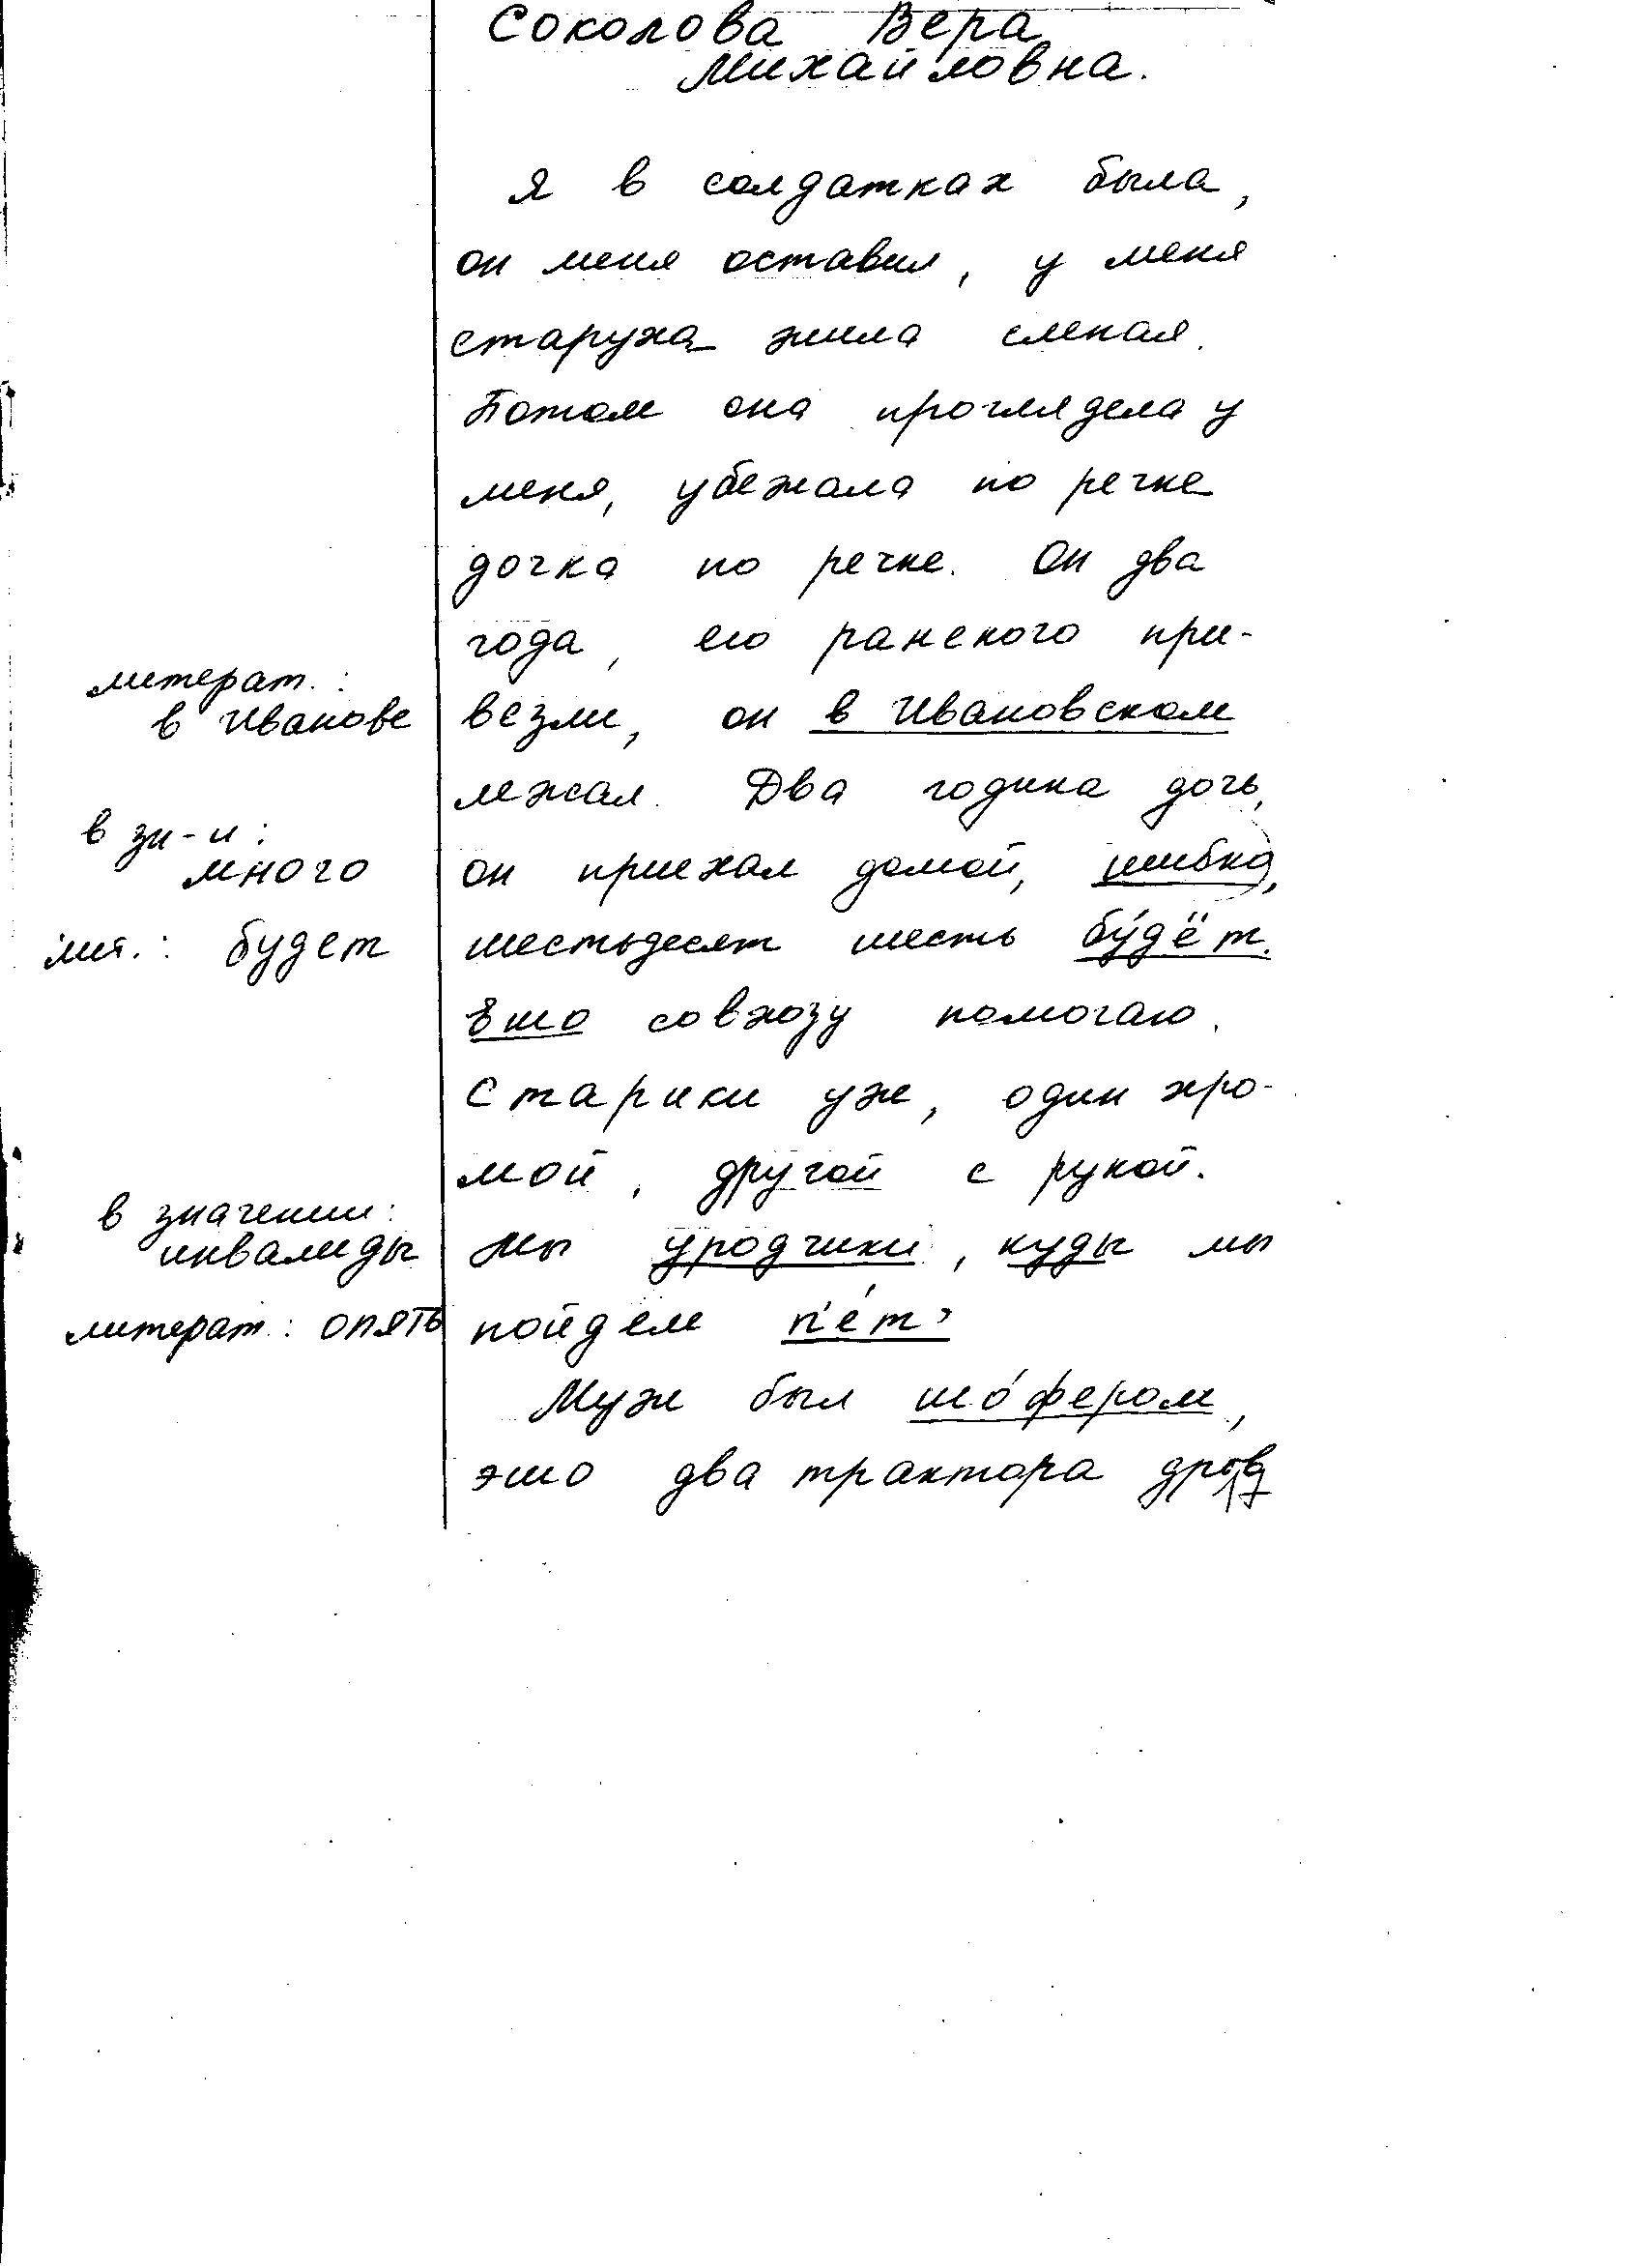 Соколова Вера
Михайловна.
Я в солдатках была,
он меня оставил, у меня
старуха жила слепая.
Потом она проглядела у
меня, убежала по речке
дочка по речке. Он два
года, его раненого при-
литерат.:
в Иванове
везли, он в Ивановском
лежал. Два годика дочь,
в зн-и:
много
он приехал домой, шибко,
лит.: будет
шестьдесят шесть бу́дёт.
Ешо совхозу помогаю.
Старики уж, один хро-
мой, другой с рукой.
в значении:
инвалиды
Мы уродчики, куды мы
литерат.: опять
пойдем п'е́т'
Муж был шо́фером,
эшо два трактора дров